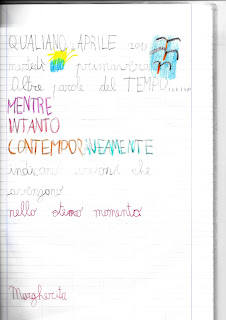 QUALIANO, APRILE 201
martedì primavera
Altre parole del TEMPO.......
MENTRE
INTANTO
CONTEMPORANEAMENTE
indicano azioni che
avvengono
nello stesso momento
Margherita